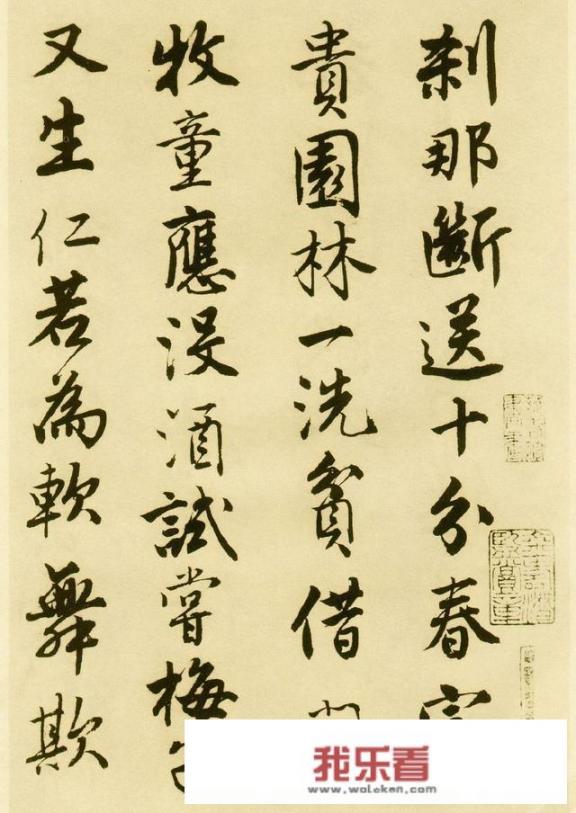 刹那斷送十分春
貴園林一洗貧借
牧童應没酒試嘗梅
又生仁若為軟舞欺
我乐看
www.woleken.com